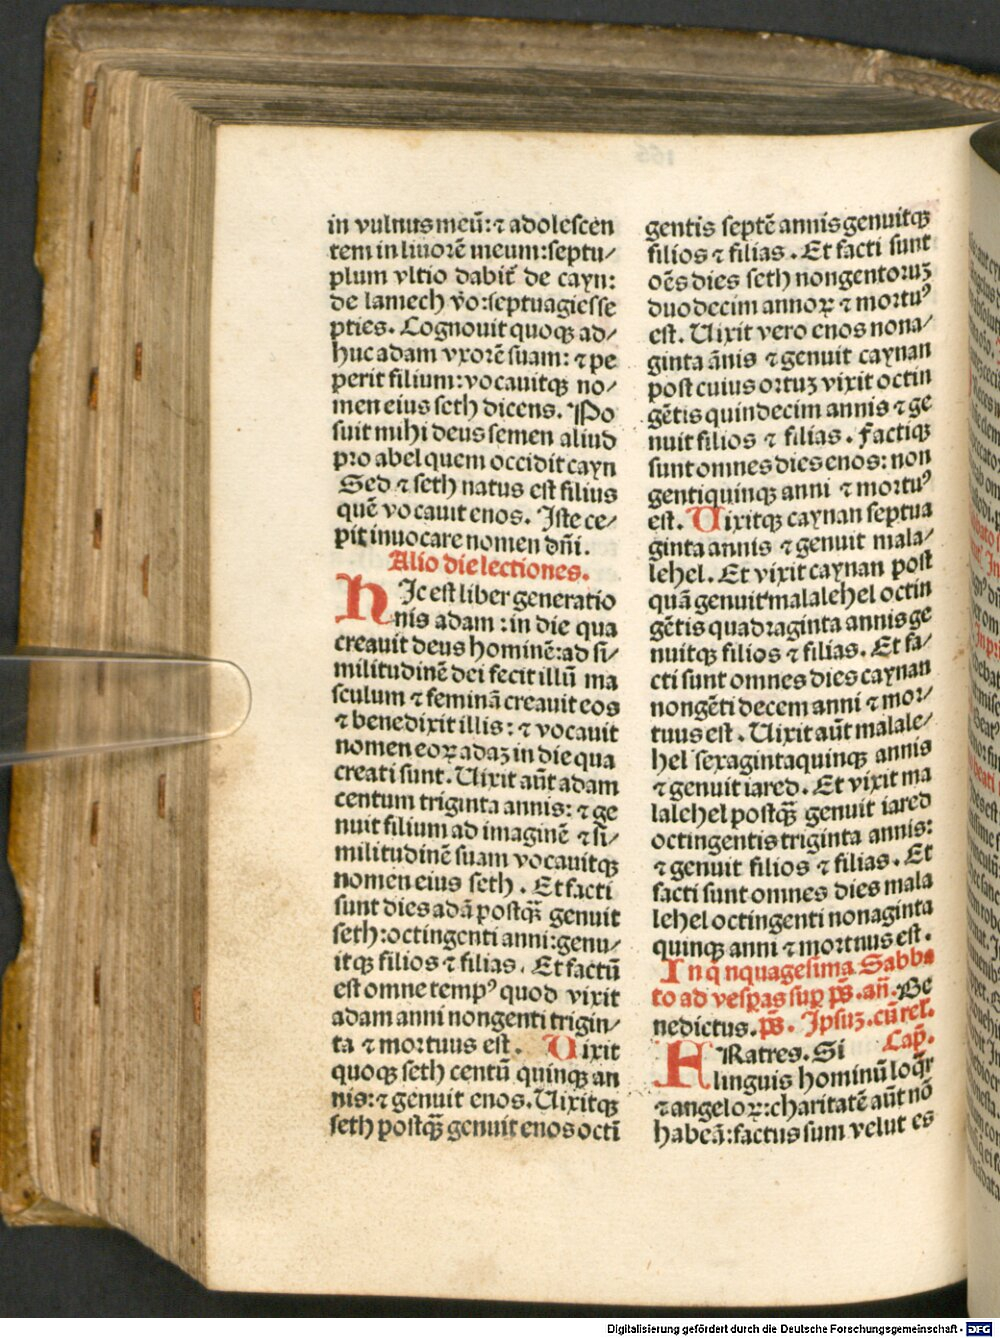 in vulnus meū: ⁊ adolescen
tem in liuorē meum: septu/
plum vltio dabit᷑ de cayn:
de lamech ꝟo: septuagiesse
pties. Cognouit quoqꝫ ad/
huc adam vxorē suam: ⁊ pe
perit filium: vocauitqꝫ no/
men eius seth dicens. Po
suit mihi deus semen aliud
pro abel quem occidit cayn
Sed ⁊ seth natus est filius
quē vocauit enos. Iste ce/
pit inuocare nomen dn̄i.
Alio die lectiones.
HIc est liber generatio
nis adam: in die qua
creauit deus hominē: ad si/
militudinē dei fecit illū ma
sculum ⁊ feminā creauit eos
⁊ benedixit illis: ⁊ vocauit
nomen eoꝝ adaꝫ in die qua
creati sunt. Uixit aūt adam
centum triginta annis: ⁊ ge
nuit filium ad imaginē ⁊ si/
militudinē suam vocauitqꝫ
nomen eius seth. Et facti
sunt dies adā postqꝫ̄ genuit
seth: octingenti anni: genu/
itqꝫ filios ⁊ filias. Et factū
est omne tempꝰ quod vixit
adam anni nongenti trigin/
ta ⁊ mortuus est. Uixit
quoqꝫ seth centū quinqꝫ an
nis: ⁊ genuit enos. Uixitqꝫ
seth postqꝫ̄ genuit enos octī
gentis septē annis genuitqꝫ
filios ⁊ filias. Et facti sunt
oēs dies seth nongentoruꝫ
duodecim annoꝝ ⁊ mortuꝰ
est. Uixit vero enos nona/
ginta ānis ⁊ genuit caynan
post cuius ortuꝫ vixit octin
gētis quindecim annis ⁊ ge
nuit filios ⁊ filias. Factiqꝫ
sunt omnes dies enos: non
genti quinqꝫ anni ⁊ mortuꝰ
est. Uixitqꝫ caynan septua
ginta annis ⁊ genuit mala/
lehel. Et vixit caynan post
quā genuit malalehel octin
gētis quadraginta annis ge
nuitqꝫ filios ⁊ filias. Et fa/
cti sunt omnes dies caynan
nongēti decem anni ⁊ mor/
tuus est. Uixit aūt malale/
hel sexagintaquinqꝫ annis
⁊ genuit iared. Et vixit ma
lalehel postqꝫ̄ genuit iared
octingentis triginta annis:
⁊ genuit filios ⁊ filias. Et
facti sunt omnes dies mala
lehel octingenti nonaginta
quinqꝫ anni ⁊ mortnus est.
In q nquagesima Sabba
to ad vesꝑas suꝑ p̄s. an̄. Be
nedictus. p̄s. Ipsuꝫ. cū rel.
Cap̄.
FRatres. Si
linguis hominū loqr᷑
⁊ angeloꝝ: charitatē aūt nō
habeā: factus sum velut es
Digitalisierung gefördert durch die Deutsche Forschungsgemeinschaft - DFG